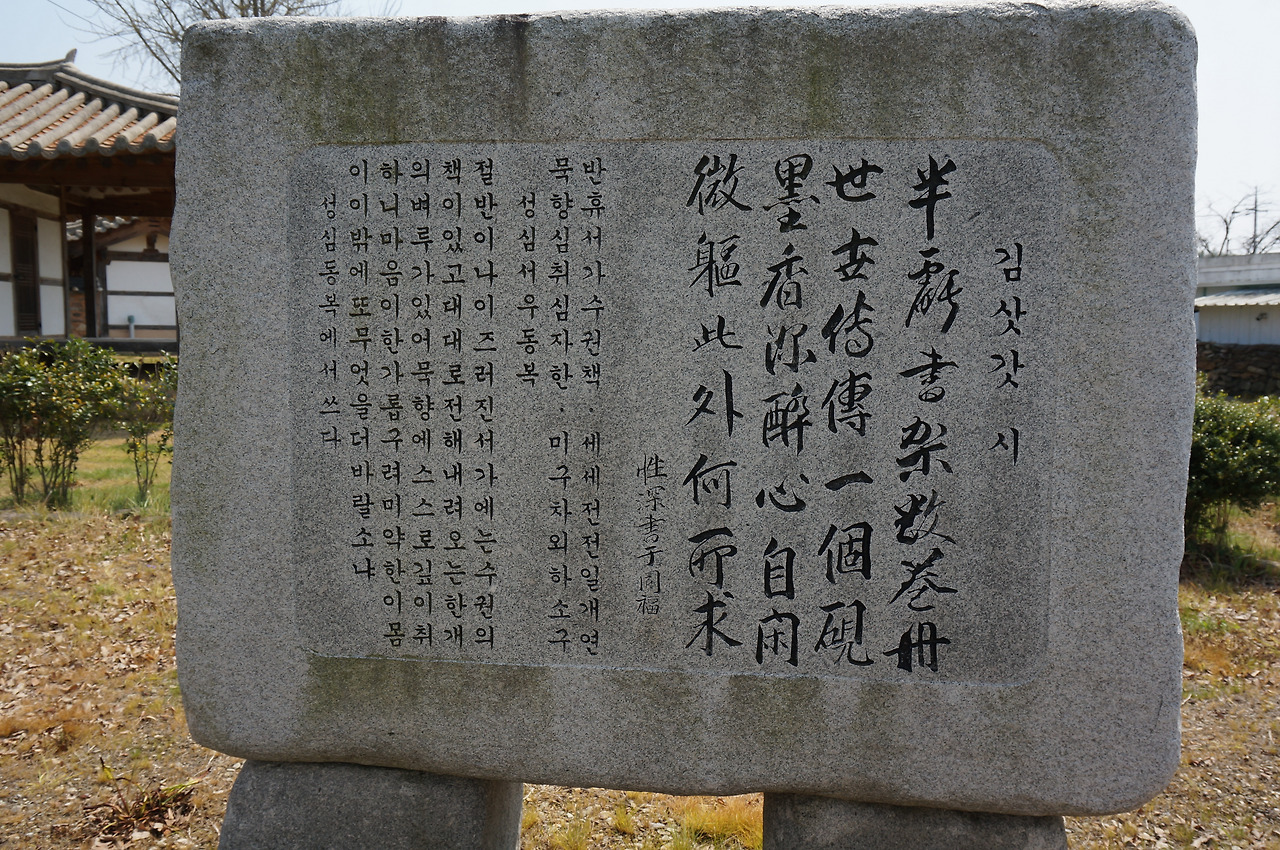 김삿갓 시
半虧書架数巻冊
世世傳傳一個硯
墨香深醉心自閑
微軀此外何所求
性深書于同福
반휴서가수권책 . 세세전전일개연
묵향심취심자한 . 미구차외하소구
성심서우동복
절반이나이즈러진서가에는수권의
책이있고대대로전해내려오는한개
의벼루가있어묵향에스스로깊이취
하니마음이한가롭구려미약한이몸
이이밖에또무엇을더바랄소냐
성심동복에서쓰다